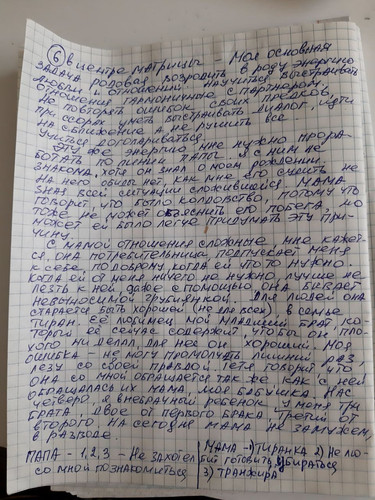 ⑥ В центре МАТРИЦЫ – Моя основная
ЗАДАЧА родовая возродить в роду энергию
Любви и отношений, научиться выстраивать
отношения гармоничные с партнером,
не повторять ошибок своих предков,
при ссорах уметь выстраивать диалог, идти
на сближение а не рушить все
Учиться договариваться.
Эту же энергию мне нужно прора-
ботать по линии ПАПЫ. Я с ним не
знакома, хотя он знал о моем рождении.
На него обиды нет, как мне его судить не
зная всей ситуации сложившейся. МАМА
говорит, что было колдовство, потому что
тоже не может объяснить его побега, но
может ей было легче придумать эту при-
чину.
С мамой отношения сложные, мне кажет-
ся, она потребительница, подпускает меня
к себе, по доброму, когда ей что то нужно.
Когда ей от меня ничего не нужно, лучше не
лезть к ней, даже с помощью, она бывает
невыносимой грубиянкой. Для людей она
старается быть хорошей (не для всех), в семье
тиран. Её любимец мой младший брат, ко-
торый её сейчас содержит, что бы он пло-
хого ни делал, для нее он хороший. Моя
ошибка – не могу промолчать лишний раз,
лезу со своей правдой. Тётя говорит что
она со мной обращается так же, как с ней
обращалась их мама, моя бабушка. Нас
четверо, я внебрачный ребенок, у меня три
брата, двое от первого брака, третий от
второго. На сегодня мама не замужем,
в разводе.
ПАПА - 1,2,3 - Не захотел
со мной познакомиться
МАМА - 1) Тиранка 2) Не лю-
бит готовить, убираться
3) ТРАНЖИРА